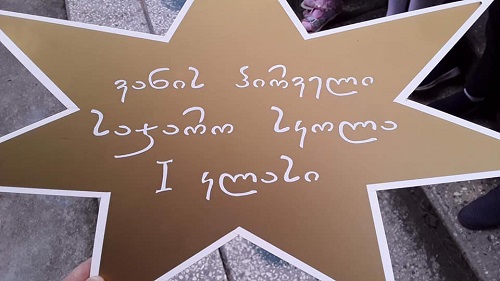 ვანის პირველი
საჯარო სკოლა
I კლასი